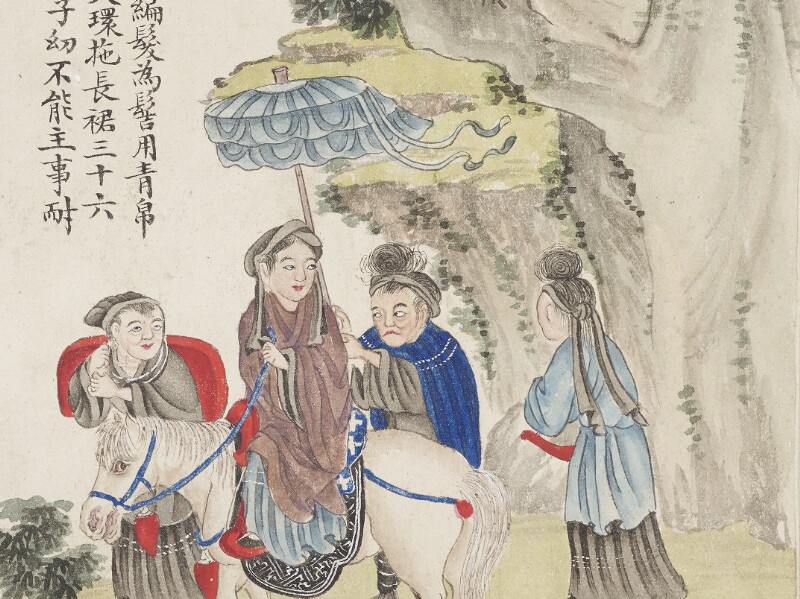 編髮為髻用青帛
環拖長裙三十六
子幼不能主事耐